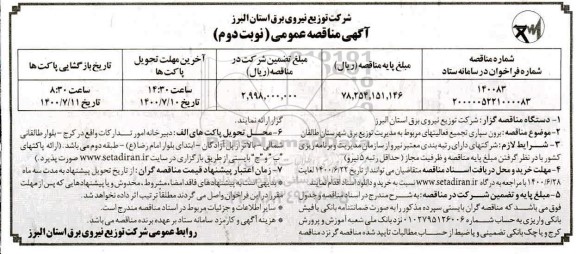 شرکت توزیع نیروی برق استان البرز
آگهی مناقصه عمومی (نوبت دوم)
شماره مناقصه
شماره فراخوان در سامانه ستاد
مبلغ پایه مناقصه (ریال)
مبلغ تضمین شرکت در
مناقصه (ریال)
آخرین مهلت تحویل
پاکت ها
تاریخ بازگشایی پاکت ها
۱۴۰۰۸۳
۲۰۰۰۰۰۵۲۲۱۰۰۰۰۸۳
۷۸,۲۵۴,۱۵۱,۱۴۶
۲,۹۹۸,۰۰۰,۰۰۰
ساعت ۱۴:۳۰
تاریخ ۱۴۰۰/۷/۱۰
ساعت ۸:۳۰
تاریخ ۱۴۰۰/۷/۱۱
۱- دستگاه مناقصه گزار: شرکت توزیع نیروی برق استان البرز
۲- موضوع مناقصه: برون سپاری تجمیع فعالیتهای مربوط به مدیریت توزیع برق شهرستان طالقان
۳- شرایط لازم: شرکتهای دارای رتبه بندی معتبر نیرو از سازمان مدیریت و برنامه ریزی
کشور با در نظر گرفتن مبلغ پایه مناقصه و ظرفیت مجاز (حداقل رتبه ۵ نیرو)
۴- مهلت خرید و محل دریافت اسناد مناقصه: متقاضیان می توانند از تاریخ ۱۴۰۰/۶/۲۲ لغایت
۱۴۰۰/۶/۲۸ با مراجعه به درگاه www.setadiran.ir نسبت به خرید و دانلود اسناد اقدام نمایند.
۵- مبلغ پایه و تضمین شرکت در مناقصه: به شرح مندرج در اسناد مناقصه و جدول
فوق می باشد که مناقصه گران بایستی سپرده مذکور را به صورت ضمانتنامه بانکی یا فیش
بانکی واریزی به حساب شماره ۰۱۰۲۷۹۵۱۲۶۰۰۶ نزد بانک ملی شعبه آموزش و پرورش
کرج و یا چک بانکی تضمینی و یا ضبط از حساب مطالبات تایید شده مناقصه گر نزد مناقصه
گزار ارائه نمایند.
۶- محل تحویل پاکت های الف: دبیرخانه امور تدارکات واقع در کرج - بلوار طالقانی
شمالی - بالاتر از پل آزادگان - ابتدای بلوار امام رضا (ع) - طبقه دوم می باشد. (ارائه پاکتهای
"ب" و "ج" بایستی از طریق بارگزاری در سایت www.setadiran.ir صورت پذیرد.)
۷- زمان اعتبار پیشنهاد قیمت مناقصه گران: از تاریخ تحویل پیشنهاد به مدت سه ماه
* بدیهی است به پیشنهادهای فاقد امضا، مشروط، مخدوش و یا پیشنهادهایی که پس از مهلت
مقرر در این فراخوان واصل می گردند مطلقا ترتیب اثر داده نخواهد شد.
* سایر اطلاعات و جزئیات مربوط در اسناد مناقصه مندرج است.
* هزینه آگهی و کارمزد سامانه ستاد بر عهده برنده مناقصه می باشد.
روابط عمومی شرکت توزیع نیروی برق استان البرز